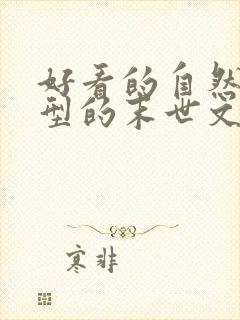 好看的自然
型的末世文
寒非